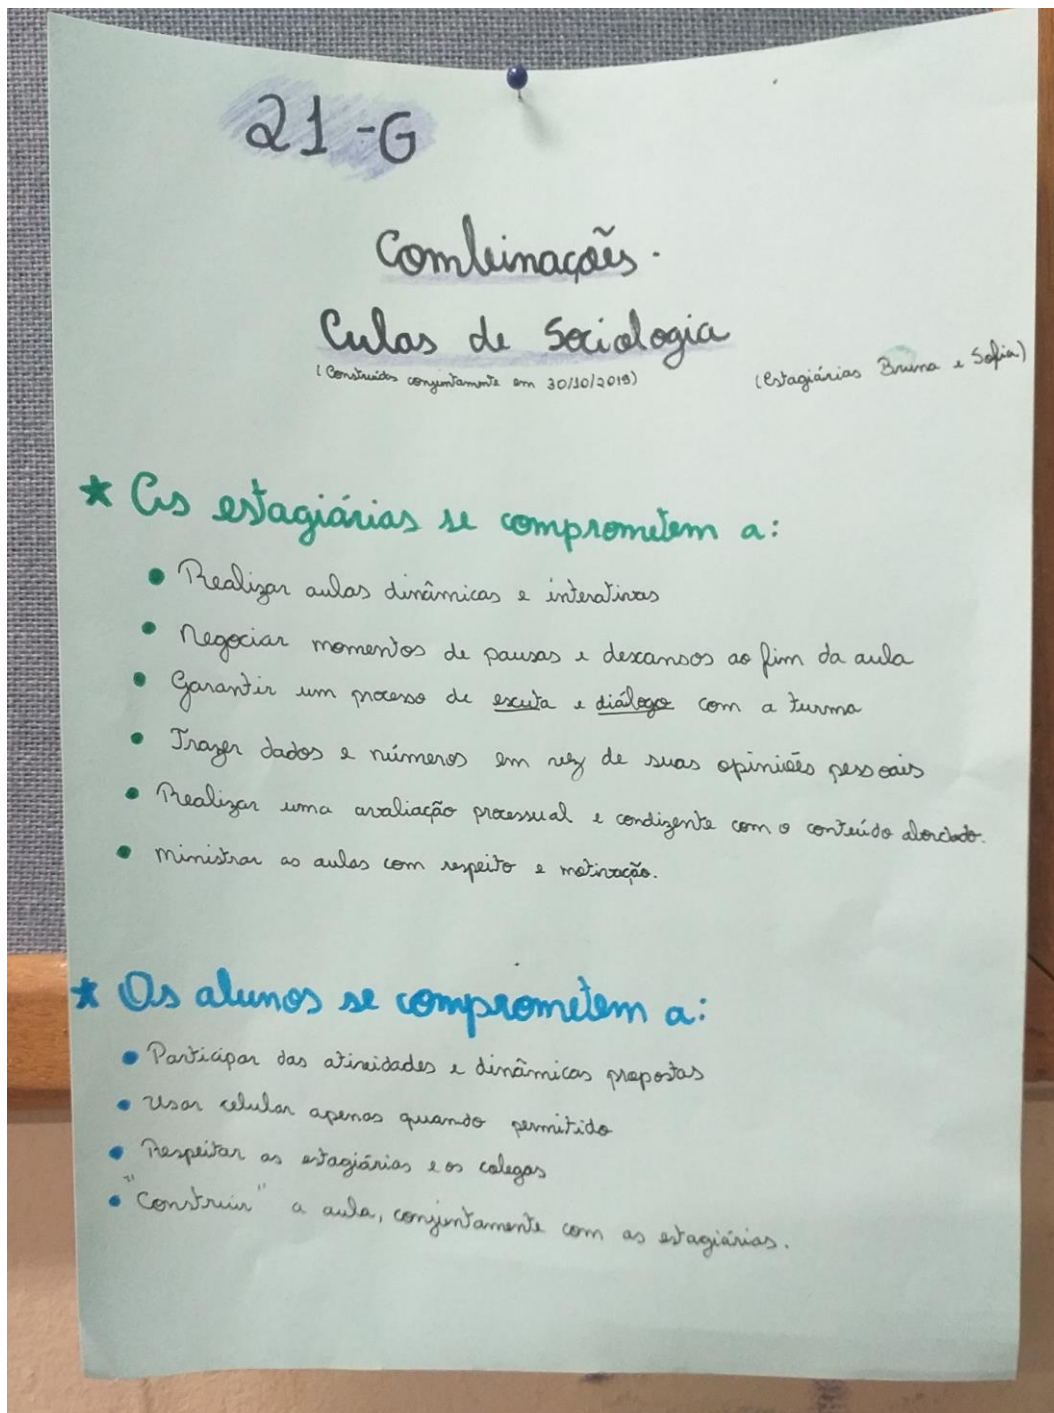 21-G
Combinações.
Aulas de Sociologia
(Construídas conjuntamente em 30/10/2019)
(Estagiárias Bruna e Sofia)
★ As estagiárias se comprometem a:
• Realizar aulas dinâmicas e interativas
• Negociar momentos de pausas e descansos ao fim da aula
• Garantir um processo de escuta e diálogo com a turma
• Trazer dados e números em vez de suas opiniões pessoais
• Realizar uma avaliação processual e condizente com o conteúdo abordado.
• Ministrar as aulas com respeito e motivação.
★ Os alunos se comprometem a:
• Participar das atividades e dinâmicas propostas
• Usar celular apenas quando permitido
• Respeitar as estagiárias e os colegas
• "Construir" a aula, conjuntamente com as estagiárias.